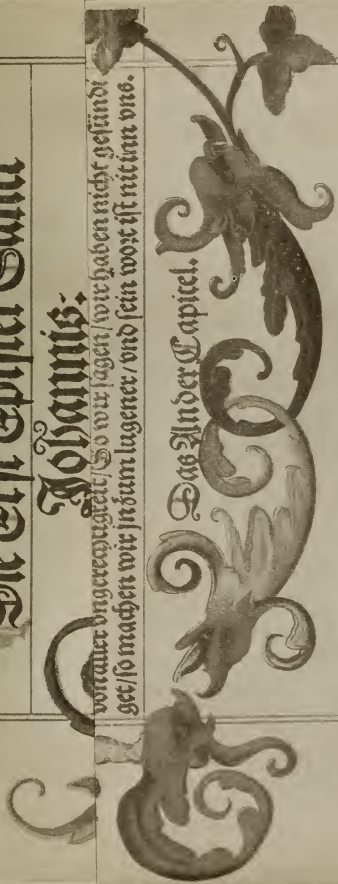 Die Erst Epistel Sanct
Johannis.
von aller vngerechtigkeit / So wir sagen / wir haben nicht gesündi
get / so machen wir jn zum lugener / vnd sein wort ist nit inn vns.
Das Ander Capitel.